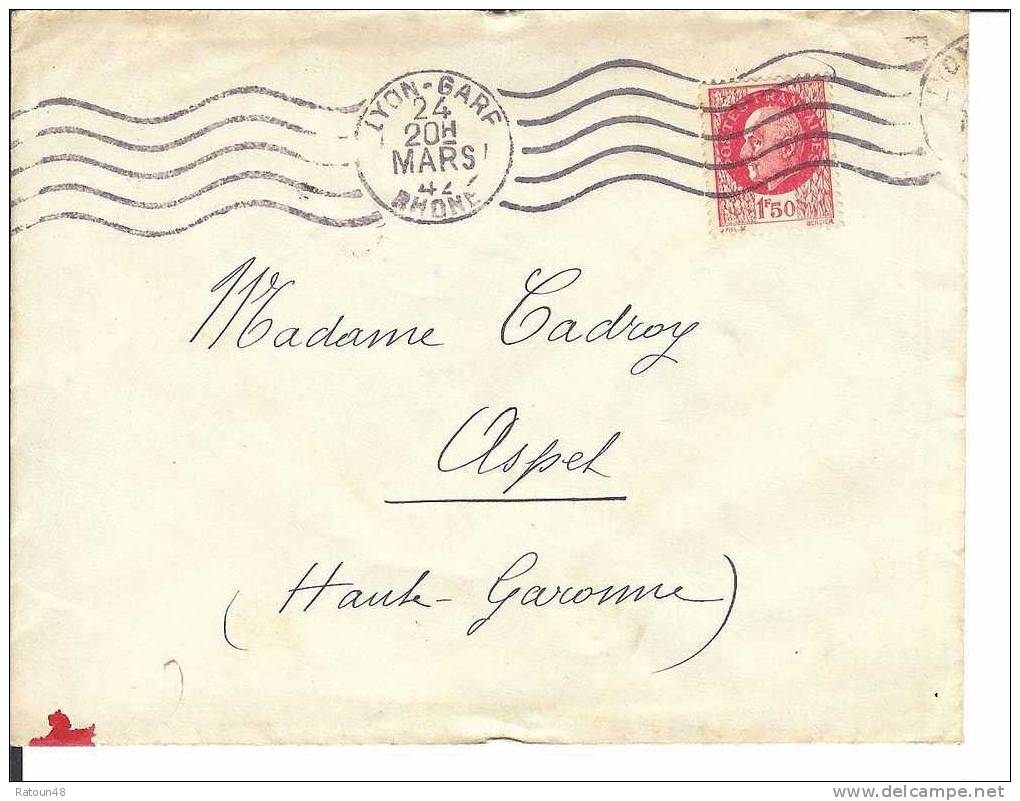 LYON-GARE
24
20H
MARS
42
RHONE
POSTES FRANÇAISES
1F50
Madame Cadroy
Aspet
(Haute-Garonne)
Ratoun48
delcampe.net